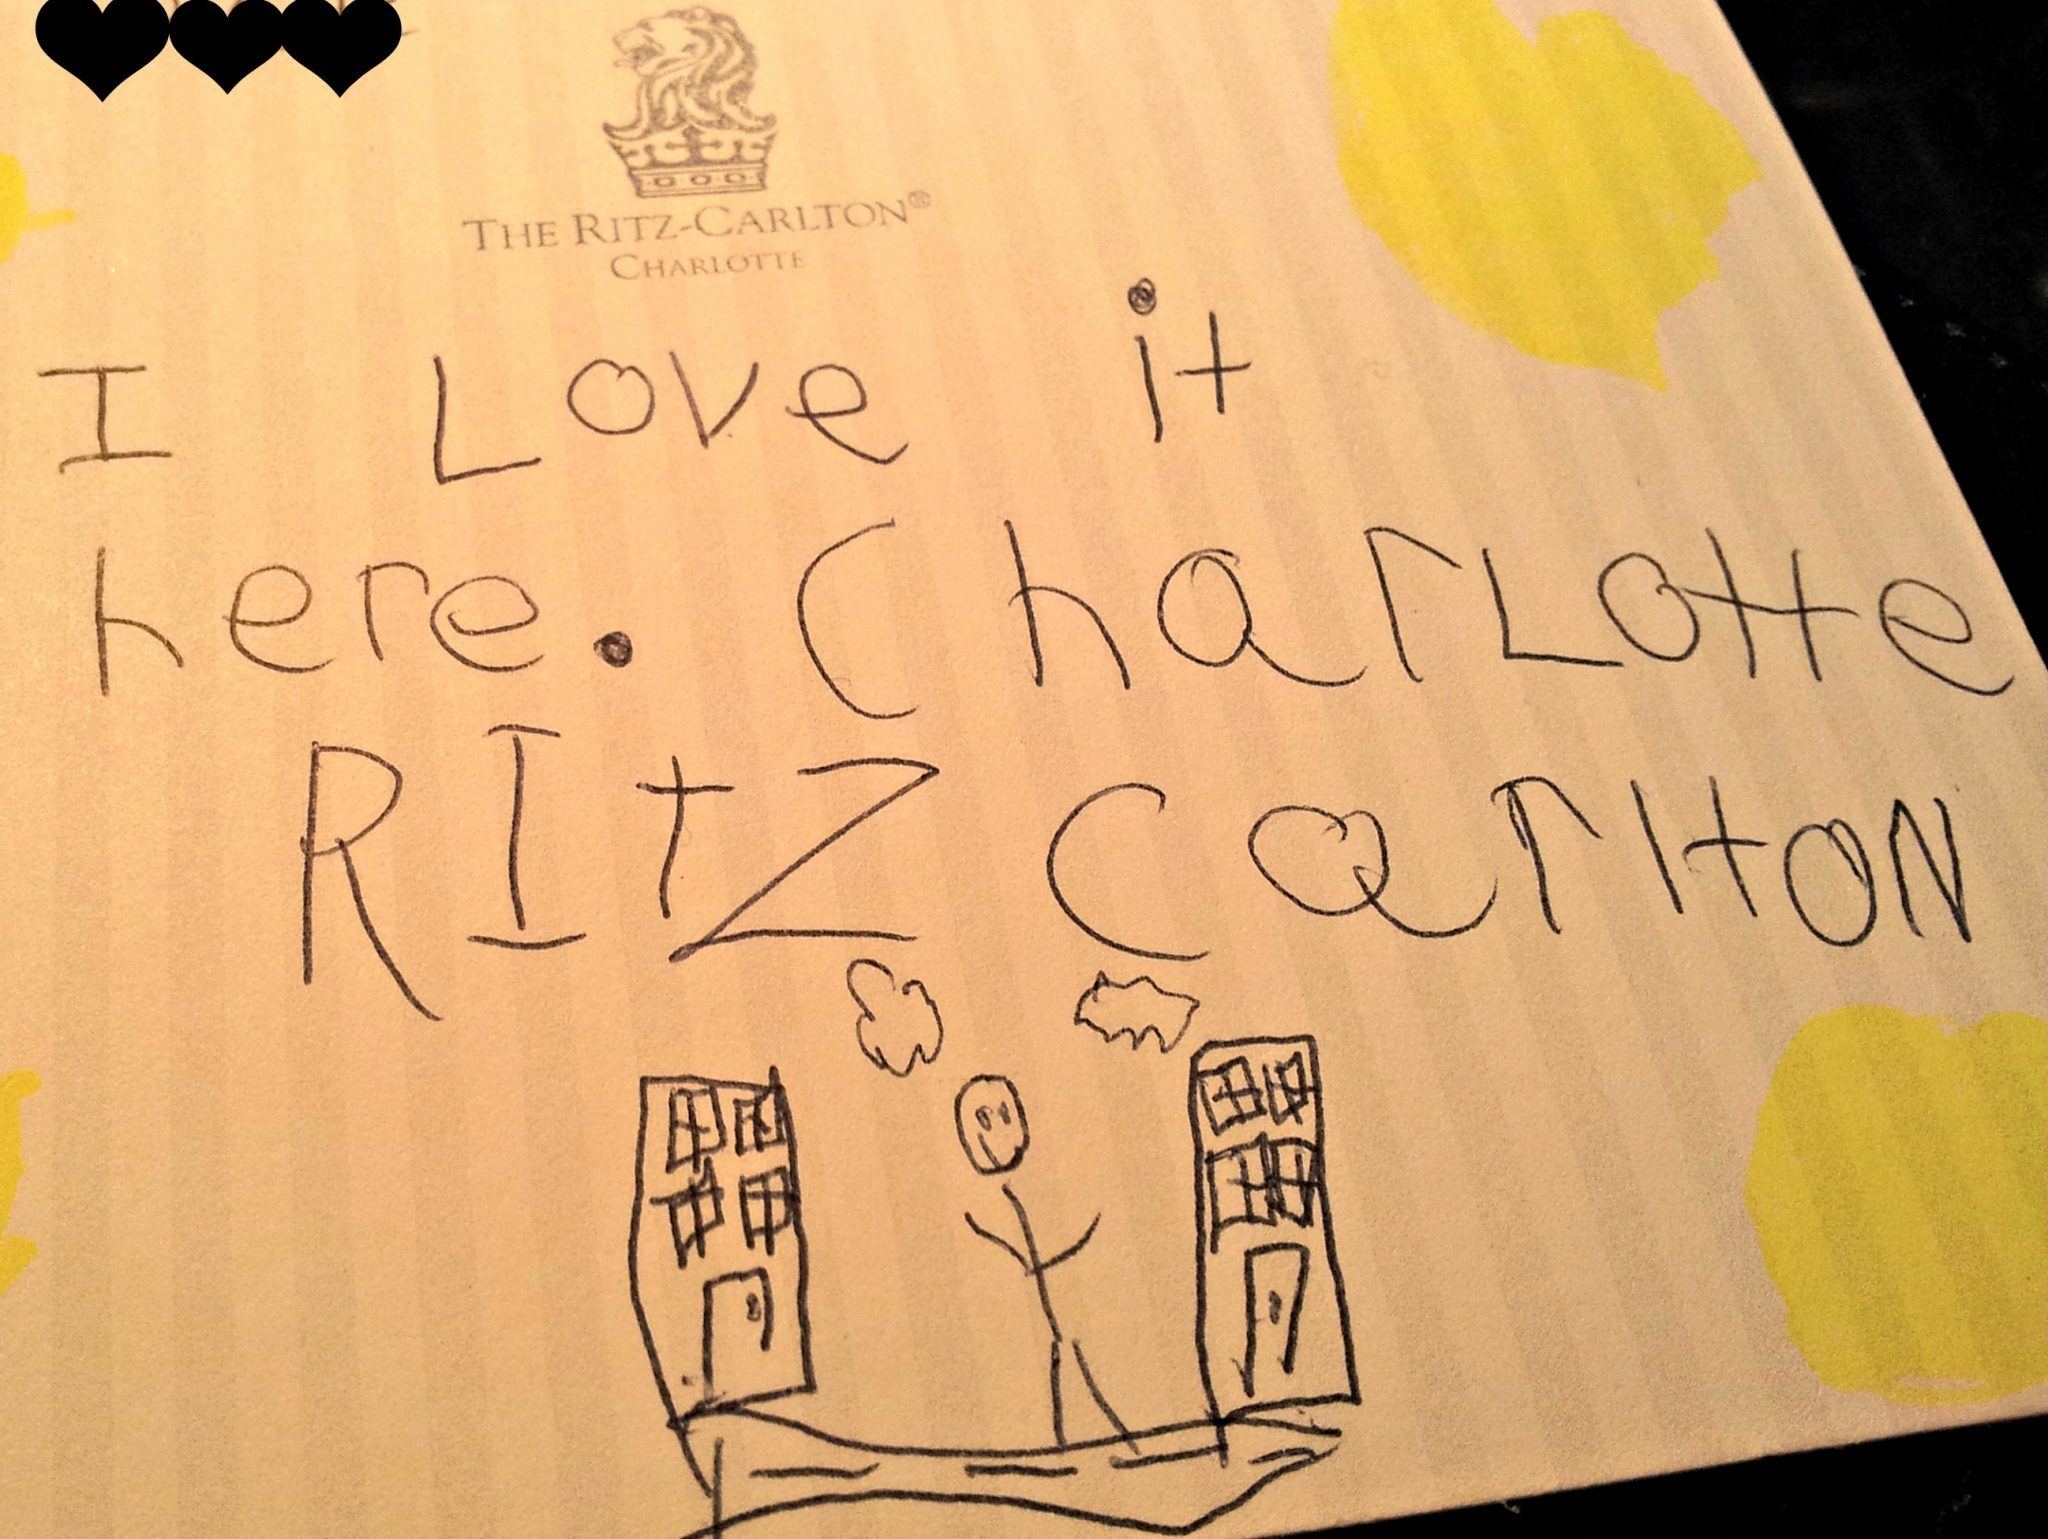 THE RITZ-CARLTON®
CHARLOTTE
I Love it
here. CharLotte
RItZ CarltoN